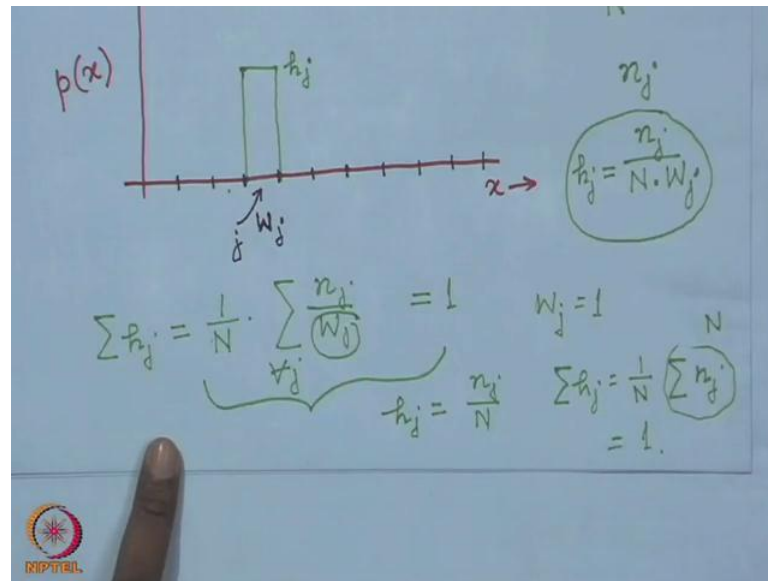 N
p(x)
h_j
n_j
h_j = n_j / (N · W_j)
x →
j W_j
∑ h_j = 1/N · ∑_{∀j} n_j / W_j = 1
W_j = 1
N
h_j = n_j / N
∑ h_j = 1/N ∑ n_j
= 1.
NPTEL